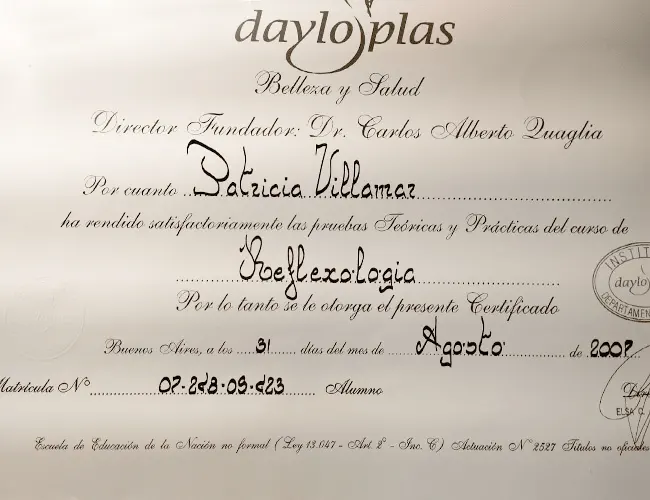 dayloplas
Belleza y Salud
Director Fundador: Dr. Carlos Alberto Quaglia
Por cuanto Patricia Villamar
ha rendido satisfactoriamente las pruebas Teóricas y Prácticas del curso de
Reflexologia
Por lo tanto se le otorga el presente Certificado
Buenos Aires, a los 31 días del mes de Agosto de 2007
Matrícula Nº 07-2d8-09-d23 Alumno
Escuela de Educación de la Nación no formal (Ley 13.047 - Art. 2º - Inc. C) Actuación Nº 2527 Títulos no oficiales
INSTIT
daylop
DEPARTAMEN
Dir
ELSA C.